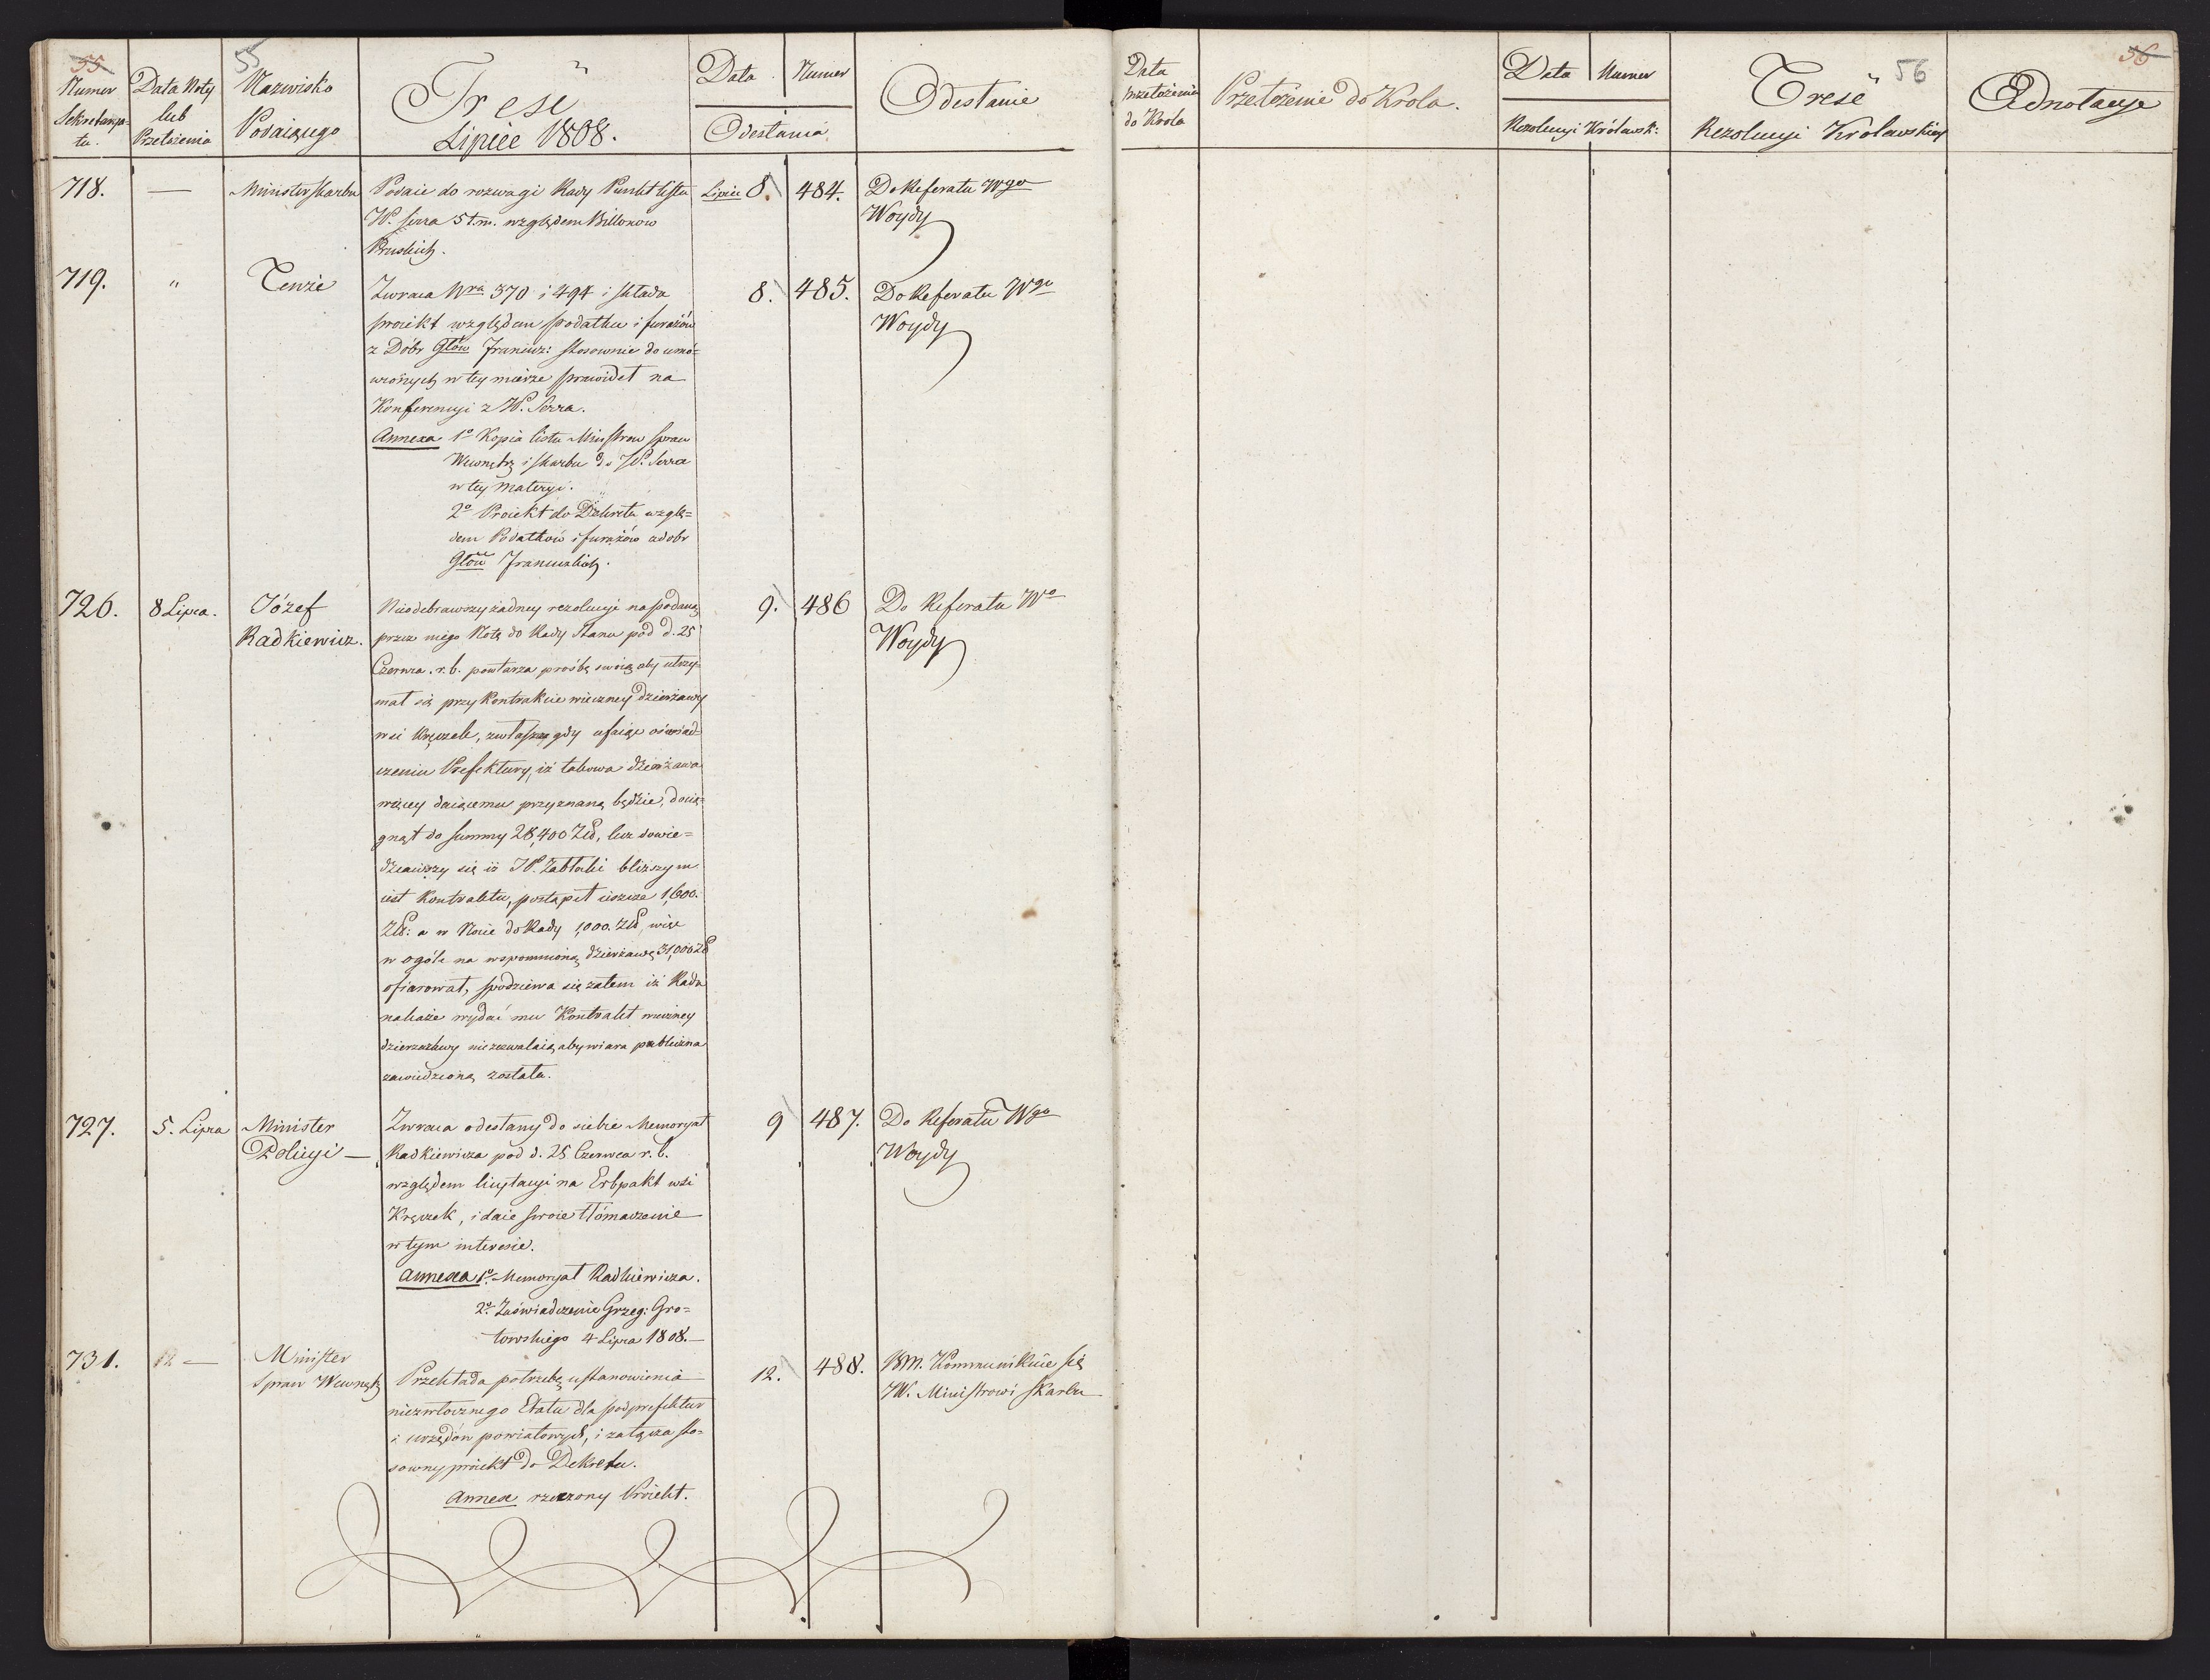 55
55
Numer
Sekretarya-
tu.
Data Noty
lub
Przełożenia
Nazwisko
Podaiącego
Treść
Lipiec 1808.
Data
Numer
Odesłania
Odesłanie
718.
—
Minister Skarbu
Podaie do rozwagi Rady Punkt listu
W. Serra 5 t. m. względem Billonow
Pruskich.
Lipiec 8.
484.
Do Referatu Wgo
Woydy
719.
"
Tenże
Zwraca Nra 370 i 494 i składa
proiekt względem podatku i furażów
z Dóbr Głów Francuz: stosownie do umó=
wionych w tey mierze prawideł na
Konferencyi z W. Serra.
Annexa 1o Kopia listu Ministrow Spraw
Wewnętrz i Skarbu do W. Serra
w tey materyi.
2o Proiekt do Dekretu wzglę=
dem Podatków i furażów z dobr
Głów Francuzkich.
8.
485.
Do Referatu Wgo
Woydy
726.
8 Lipca.
Józef
Radkiewicz.
Nieodebrawszy żadney rezolucyi na podaną
przez niego Notę do Rady Stanu pod d. 25
Czerwca. r. b. powtarza prośbę swoię aby utrzy=
mał się przy Kontrakcie wieczney dzierżawy
wsi Kręczek, zwłaszcza gdy ufaiąc oświad=
czeniu Prefektury, iż takowa dzierżawa
więcey daiącemu przyznaną będzie, docią=
gnął do summy 28,400 Złd, lecz dowie=
dziawszy się iż JP. Zabłocki bliższym
iest Kontraktu, postąpił ieszcze 1,600.
Złd: a w Nocie do Rady 1,000. Złd, więc
w ogóle na wspomnioną dzierżawę 31,000 Złd
ofiarował, spodziewa się zatem iż Rada
nakaże wydać mu Kontrakt wieczney
dzierzawy niezezwalaią, aby wiara publiczna
zawiedzioną została.
9.
486
Do Referatu Wo
Woydy
727.
5. Lipca
Minister
Policyi —
Zwraca odesłany do siebie Memoryał
Radkiewicza pod d. 25 Czerwca r. b.
względem licytacyi na Erbpakt wsi
Kręczek, i daie swoie tłómaczenie
w tym interesie.
Annexa 1o Memoryał Radkiewicza.
2o Zaświadczenie Grzeg: Gro=
towskiego 4 Lipca 1808.—
9
487.
Do Referatu Wgo
Woydy
731.
12 —
Minister
Spraw Wewnętrz
Przekłada potrzebę ustanowienia
niezwłocznego Etatu dla podprefektur
i urzędów powiatowych, i załącza sto=
sowny proiekt do Dekretu.
Annex rzeczony Proiekt.
12.
488.
Bm. Kommunikuie się
JW. Ministrowi Skarbu
Data
przełożenia
do Krola
Przełożenie do Krola.
Data
Numer
Rezolucyi Królewsk:
Treść
Rezolucyi Krolewskiey
56
56
Adnotacye